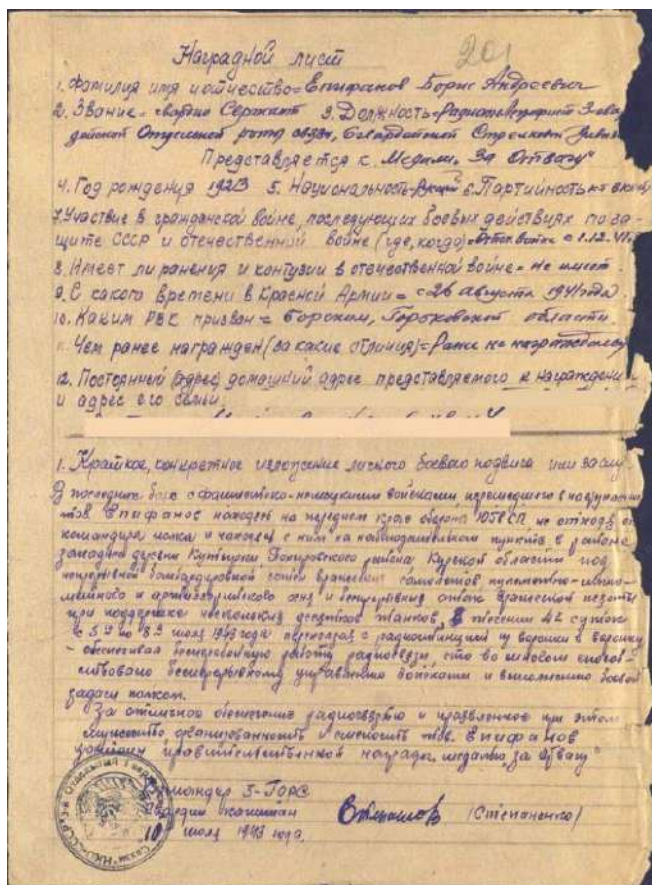 Наградной лист
201
1. Фамилия имя и отчество = Епифанов Борис Андреевич
2. Звание = гвардии Сержант 3. Должность = Радиотелеграфист 3 гва
дейской Отдельной роты связи, 6 гвардейской Стрелковой дивизии
Представляется к Медали „За Отвагу“
4. Год рождения 1923 5. Национальность = Русский 6. Партийность =
7. Участие в гражданской войне, последующих боевых действиях по за-
щите СССР и отечественной войне (где, когда) = с 1.12.41
8. Имеет ли ранения и контузии в отечественной войне = не имеет.
9. С какого времени в Красной Армии = с 26 августа 1941 года
10. Каким РВК призван = Борским, Горьковской области.
11. Чем ранее награжден (за какие отличия) = Ранее не
12. Постоянный (адрес) домашний адрес представляемого к награждени
и адрес его семьи.
1. Краткое, конкретное изложение личного боевого подвига или заслу
В последних боях с фашистско-немецкими войсками перешедшего в
тов. Епифанов находясь на переднем крае обороны СП, не отходя от
командира полка и находясь с ним на наблюдательном пункте в районе
западнее деревни Кутырки Поныровского района Курской области под
непрерывной бомбардировкой сотен вражеских самолетов пулеметно-мино-
метного и артиллерийского огня и беспрерывных атак вражеской пехоты
при поддержке нескольких десятков танков, в течении суток
с 5 по 8 июля 1943 года переползая с радиостанцией из воронки в воронку
- обеспечивал бесперебойную работу радиосвязи, что во многом способ-
ствовало беспрерывному управлению войсками и выполнению боевой
задачи полком.
За отличное обеспечение радиосвязью и проявленное при этом
мужество организованность и смелость тов. Епифанов
достоин правительственной награды медалью „за Отвагу“
Командир 3-ГОРС
гвардии капитан (Степаненко)
10 июля 1943 года.